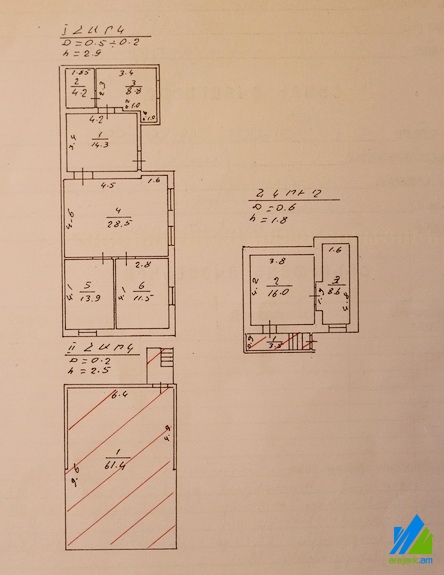 I ՀԱՐԿ
D = 0.5 ÷ 0.2
h = 2.9
1.85
3.4
2
4.2
2.3
3
8.8
1.0
4.2
1
14.3
3.4
4.5
1.6
4
28.5
2.8
5
13.9
6
11.5
II ՀԱՐԿ
D = 0.2
h = 2.5
6.4
1
61.4
9.6
ՆԿՈՒՂ
D = 0.6
h = 1.8
3.8
1.6
4.2
2
16.0
3
8.6
1
3.3
arajark.am